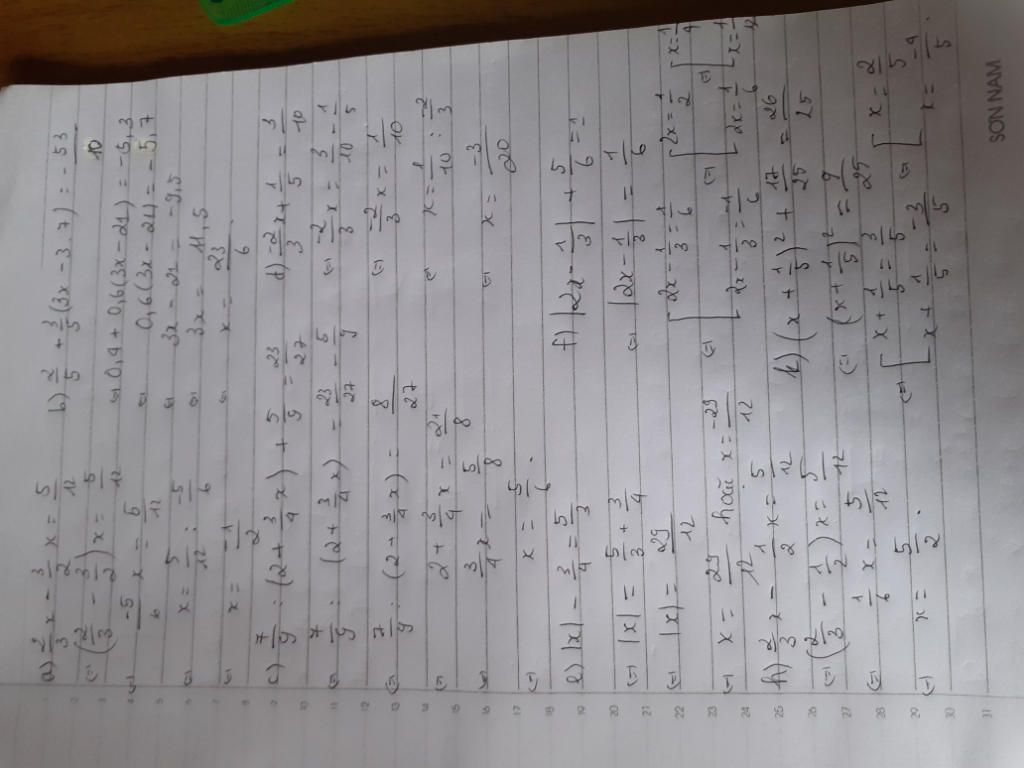 a) 2/3 x - 3/2 x = 5/12
(=) (2/3 - 3/2) x = 5/12
(=) -5/6 x = 5/12
(=) x = 5/12 : -5/6
(=) x = -1/2
b) 2/5 + 3/5 (3x - 3,7) = -53/10
(=) 0,4 + 0,6 (3x - 21) = -5,3
(=) 0,6 (3x - 21) = -5,7
(=) 3x - 21 = -9,5
(=) 3x = 11,5
(=) x = 23/6
c) 7/9 : (2 + 3/4 x) + 5/9 = 23/27
(=) 7/9 : (2 + 3/4 x) = 23/27 - 5/9
(=) 7/9 : (2 + 3/4 x) = 8/27
(=) 2 + 3/4 x = 21/8
(=) 3/4 x = 5/8
(=) x = 5/6.
d) -2/3 x + 1/5 = 3/10
(=) -2/3 x = 3/10 - 1/5
(=) -2/3 x = 1/10
(=) x = 1/10 : -2/3
(=) x = -3/20
e) |x| - 3/4 = 5/3
(=) |x| = 5/3 + 3/4
(=) |x| = 29/12
(=) x = 29/12 hoặc x = -29/12
f) |2x - 1/3| + 5/6 = 1
(=) |2x - 1/3| = 1/6
(=) [ 2x - 1/3 = 1/6 (=) [ 2x = 1/2 (=) [ x = 1/4
2x - 1/3 = -1/6 2x = 1/6 x = 1/12
h) 2/3 x - 1/2 x = 5/12
(=) (2/3 - 1/2) x = 5/12
(=) 1/6 x = 5/12
(=) x = 5/2.
k) (x + 1/5)² + 17/25 = 26/25
(=) (x + 1/5)² = 9/25
(=) [ x + 1/5 = 3/5 (=) [ x = 2/5
x + 1/5 = -3/5 x = -4/5.
1
2
3
4
5
6
7
8
9
10
11
12
13
14
15
16
17
18
19
20
21
22
23
24
25
26
27
28
29
30
31
SON NAM